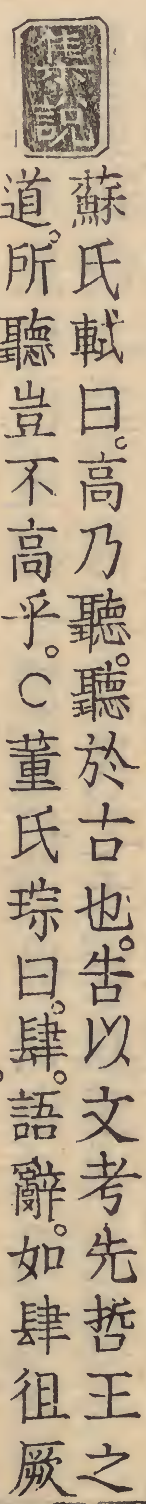 集説
蘇氏軾曰。高乃聽。聽於古也。告以文考先哲王之
道。所聽豈不高乎。○董氏琮曰。肆。語辭。如肆徂厥